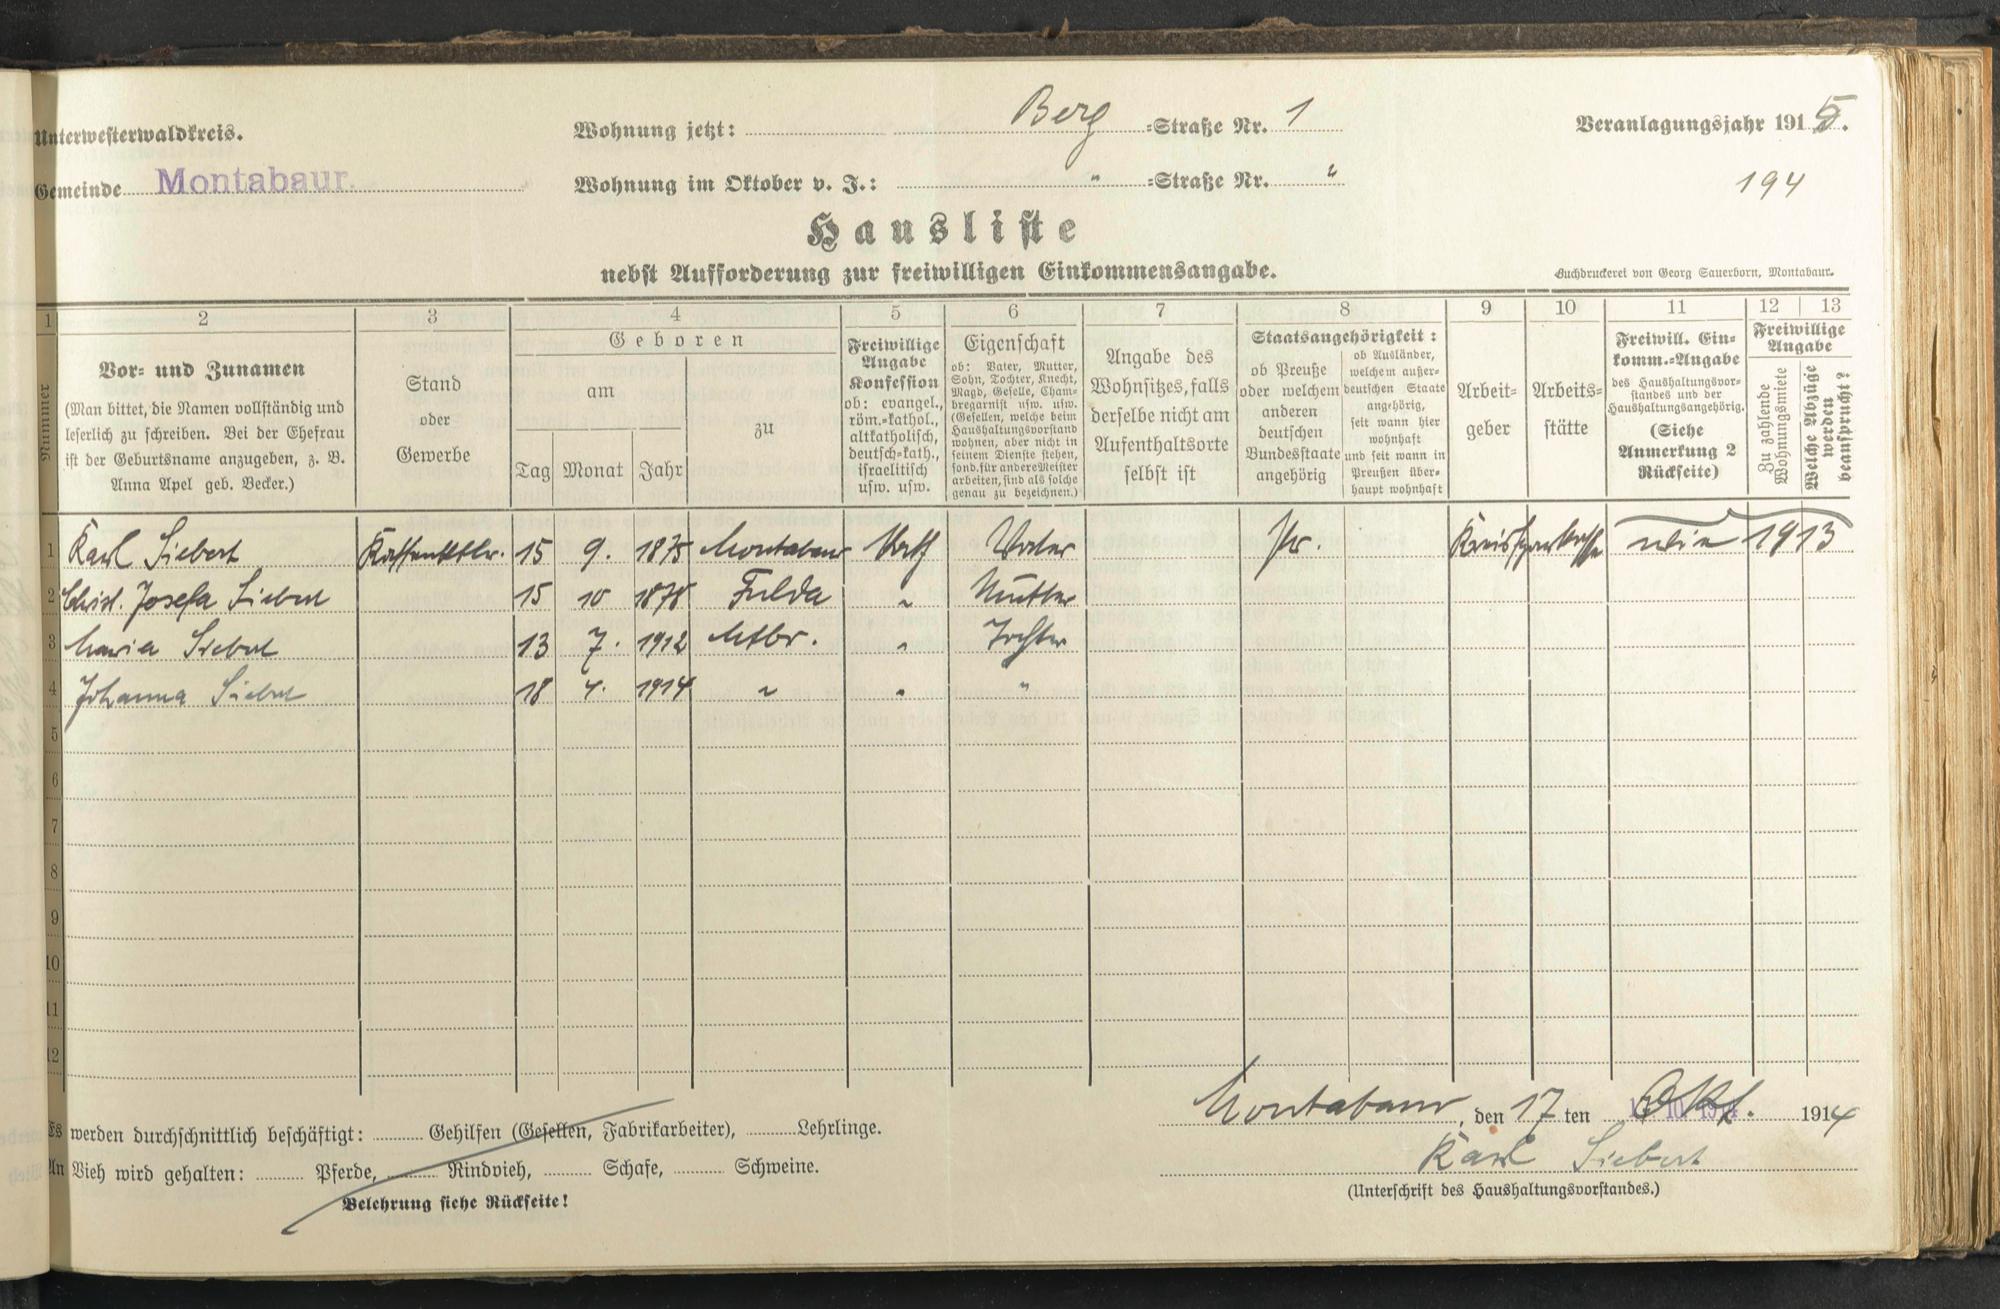 Unterwesterwaldkreis.
Wohnung jetzt: Berg =Straße Nr. 1
Veranlagungsjahr 1915.
Gemeinde Montabaur.
Wohnung im Oktober v. J.: " =Straße Nr. "
194
Hausliste
nebst Aufforderung zur freiwilligen Einkommensangabe.
Buchdruckerei von Georg Sauerborn, Montabaur.
1 2 3 4 5 6 7 8 9 10 11 12 13
Nummer
Vor- und Zunamen
(Man bittet, die Namen vollständig und
leserlich zu schreiben. Bei der Ehefrau
ist der Geburtsname anzugeben, z. B.
Anna Apel geb. Becker.)
Stand
oder
Gewerbe
Geboren
am
Tag Monat Jahr
zu
Freiwillige
Angabe
Konfession
ob: evangel.,
röm.-kathol.,
altkatholisch,
deutsch-kath.,
israelitisch
usw. usw.
Eigenschaft
ob: Vater, Mutter,
Sohn, Tochter, Knecht,
Magd, Geselle, Cham-
bregarnist usw. usw.
(Gesellen, welche beim
Haushaltungsvorstand
wohnen, aber nicht in
seinem Dienste stehen,
sond. für andere Meister
arbeiten, sind als solche
genau zu bezeichnen.)
Angabe des
Wohnsitzes, falls
derselbe nicht am
Aufenthaltsorte
selbst ist
Staatsangehörigkeit:
ob Preuße
oder welchem
anderen
deutschen
Bundesstaate
angehörig
ob Ausländer,
welchem außer-
deutschen Staate
angehörig,
seit wann hier
wohnhaft
und seit wann in
Preußen über-
haupt wohnhaft
Arbeit-
geber
Arbeits-
stätte
Freiwill. Ein-
komm.-Angabe
des Haushaltungsvor-
standes und der
Haushaltungsangehörig.
(Siehe
Anmerkung 2
Rückseite)
Freiwillige
Angabe
Zu zahlende
Wohnungsmiete
Welche Abzüge
werden
gewünscht?
1 Karl Siebert 15 9. 1875 Montabaur Kath Vater Pr. Kreissparkasse wie 1913
2 Christ. Josefa Siebert 15 10 1878 Fulda " Mutter
3 Maria Siebert 13 7. 1912 Mtbr. " Tochter
4 Johanna Siebert 18 4. 1914 " " "
5
6
7
8
9
10
11
12
Montabaur, den 17ten Okt. 1914
Es werden durchschnittlich beschäftigt: Gehilfen (Gesellen, Fabrikarbeiter), Lehrlinge.
Karl Siebert
An Vieh wird gehalten: Pferde, Rindvieh, Schafe, Schweine.
(Unterschrift des Haushaltungsvorstandes.)
Belehrung siehe Rückseite!